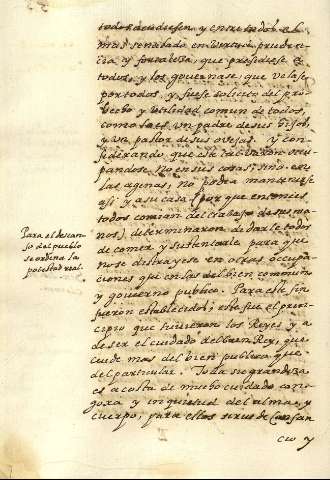 todos acudiesen y entre todos el
mas señalado en virtud, pruden-
cia y fortaleza, que presidiese a
todos, y los governase; que velase
por todos, y fuese solicito del pro-
vecho y utilidad comun de todos,
como lo es un padre de sus hijos,
y un pastor de sus ovejas. y con-
siderando que este tal varon ocu-
pandose no en sus cosas sino en
las agenas, no podia mantenerse
asi y a su casa (por que entonces
todos comian del trabajo de sus ma-
nos) determinaron de darle todos
de comer y sustentarle para que
no se distrayese en otras ocupa-
ciones que en las del bien comun
y govierno publico. Para este fin
fueron establecidos; este fue el prin-
cipio que tuvieron los Reyes y a
de ser el cuidado del buen Rey, que
cuide mas del bien publico, que
del particular. Toda su grandeza
es a costa de mucho cuidado con-
goxa y inquietud del alma, y
cuerpo, para ellos sirve de Cansan
cio y
Para el descan-
so del pueblo
se ordena la
potestad real.